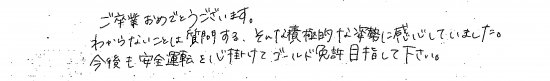 ご卒業おめでとうございます。
わからないことは質問する、そんな積極的な姿勢に感心していました。
今後も安全運転を心掛けてゴールド免許目指して下さい。